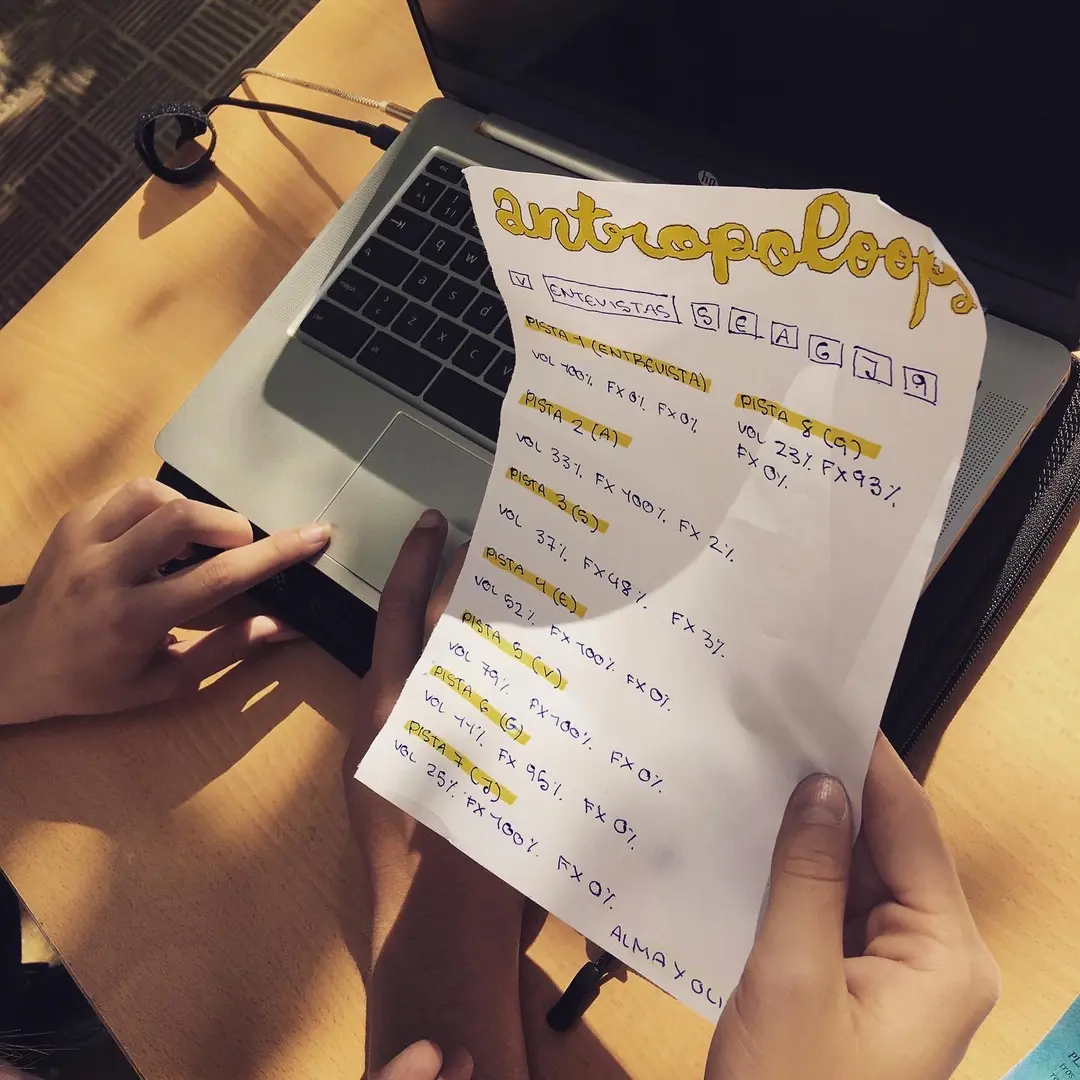 antropoloops
V ENTEVISTAS S E A G J 9
PISTA 1 (ENTREVISTA)
VOL 100% FX 0% FX 0%
PISTA 2 (A)
VOL 33% FX 100% FX 2%
PISTA 3 (S)
VOL 37% FX 48% FX 3%
PISTA 4 (E)
VOL 52% FX 100% FX 0%
PISTA 5 (V)
VOL 79% FX 100% FX 0%
PISTA 6 (G)
VOL 11% FX 95% FX 0%
PISTA 7 (J)
VOL 25% FX 100% FX 0%
PISTA 8 (9)
VOL 23% FX 93%
FX 0%
ALMA Y OLI
hp
esc
q w
a s d
z x c v